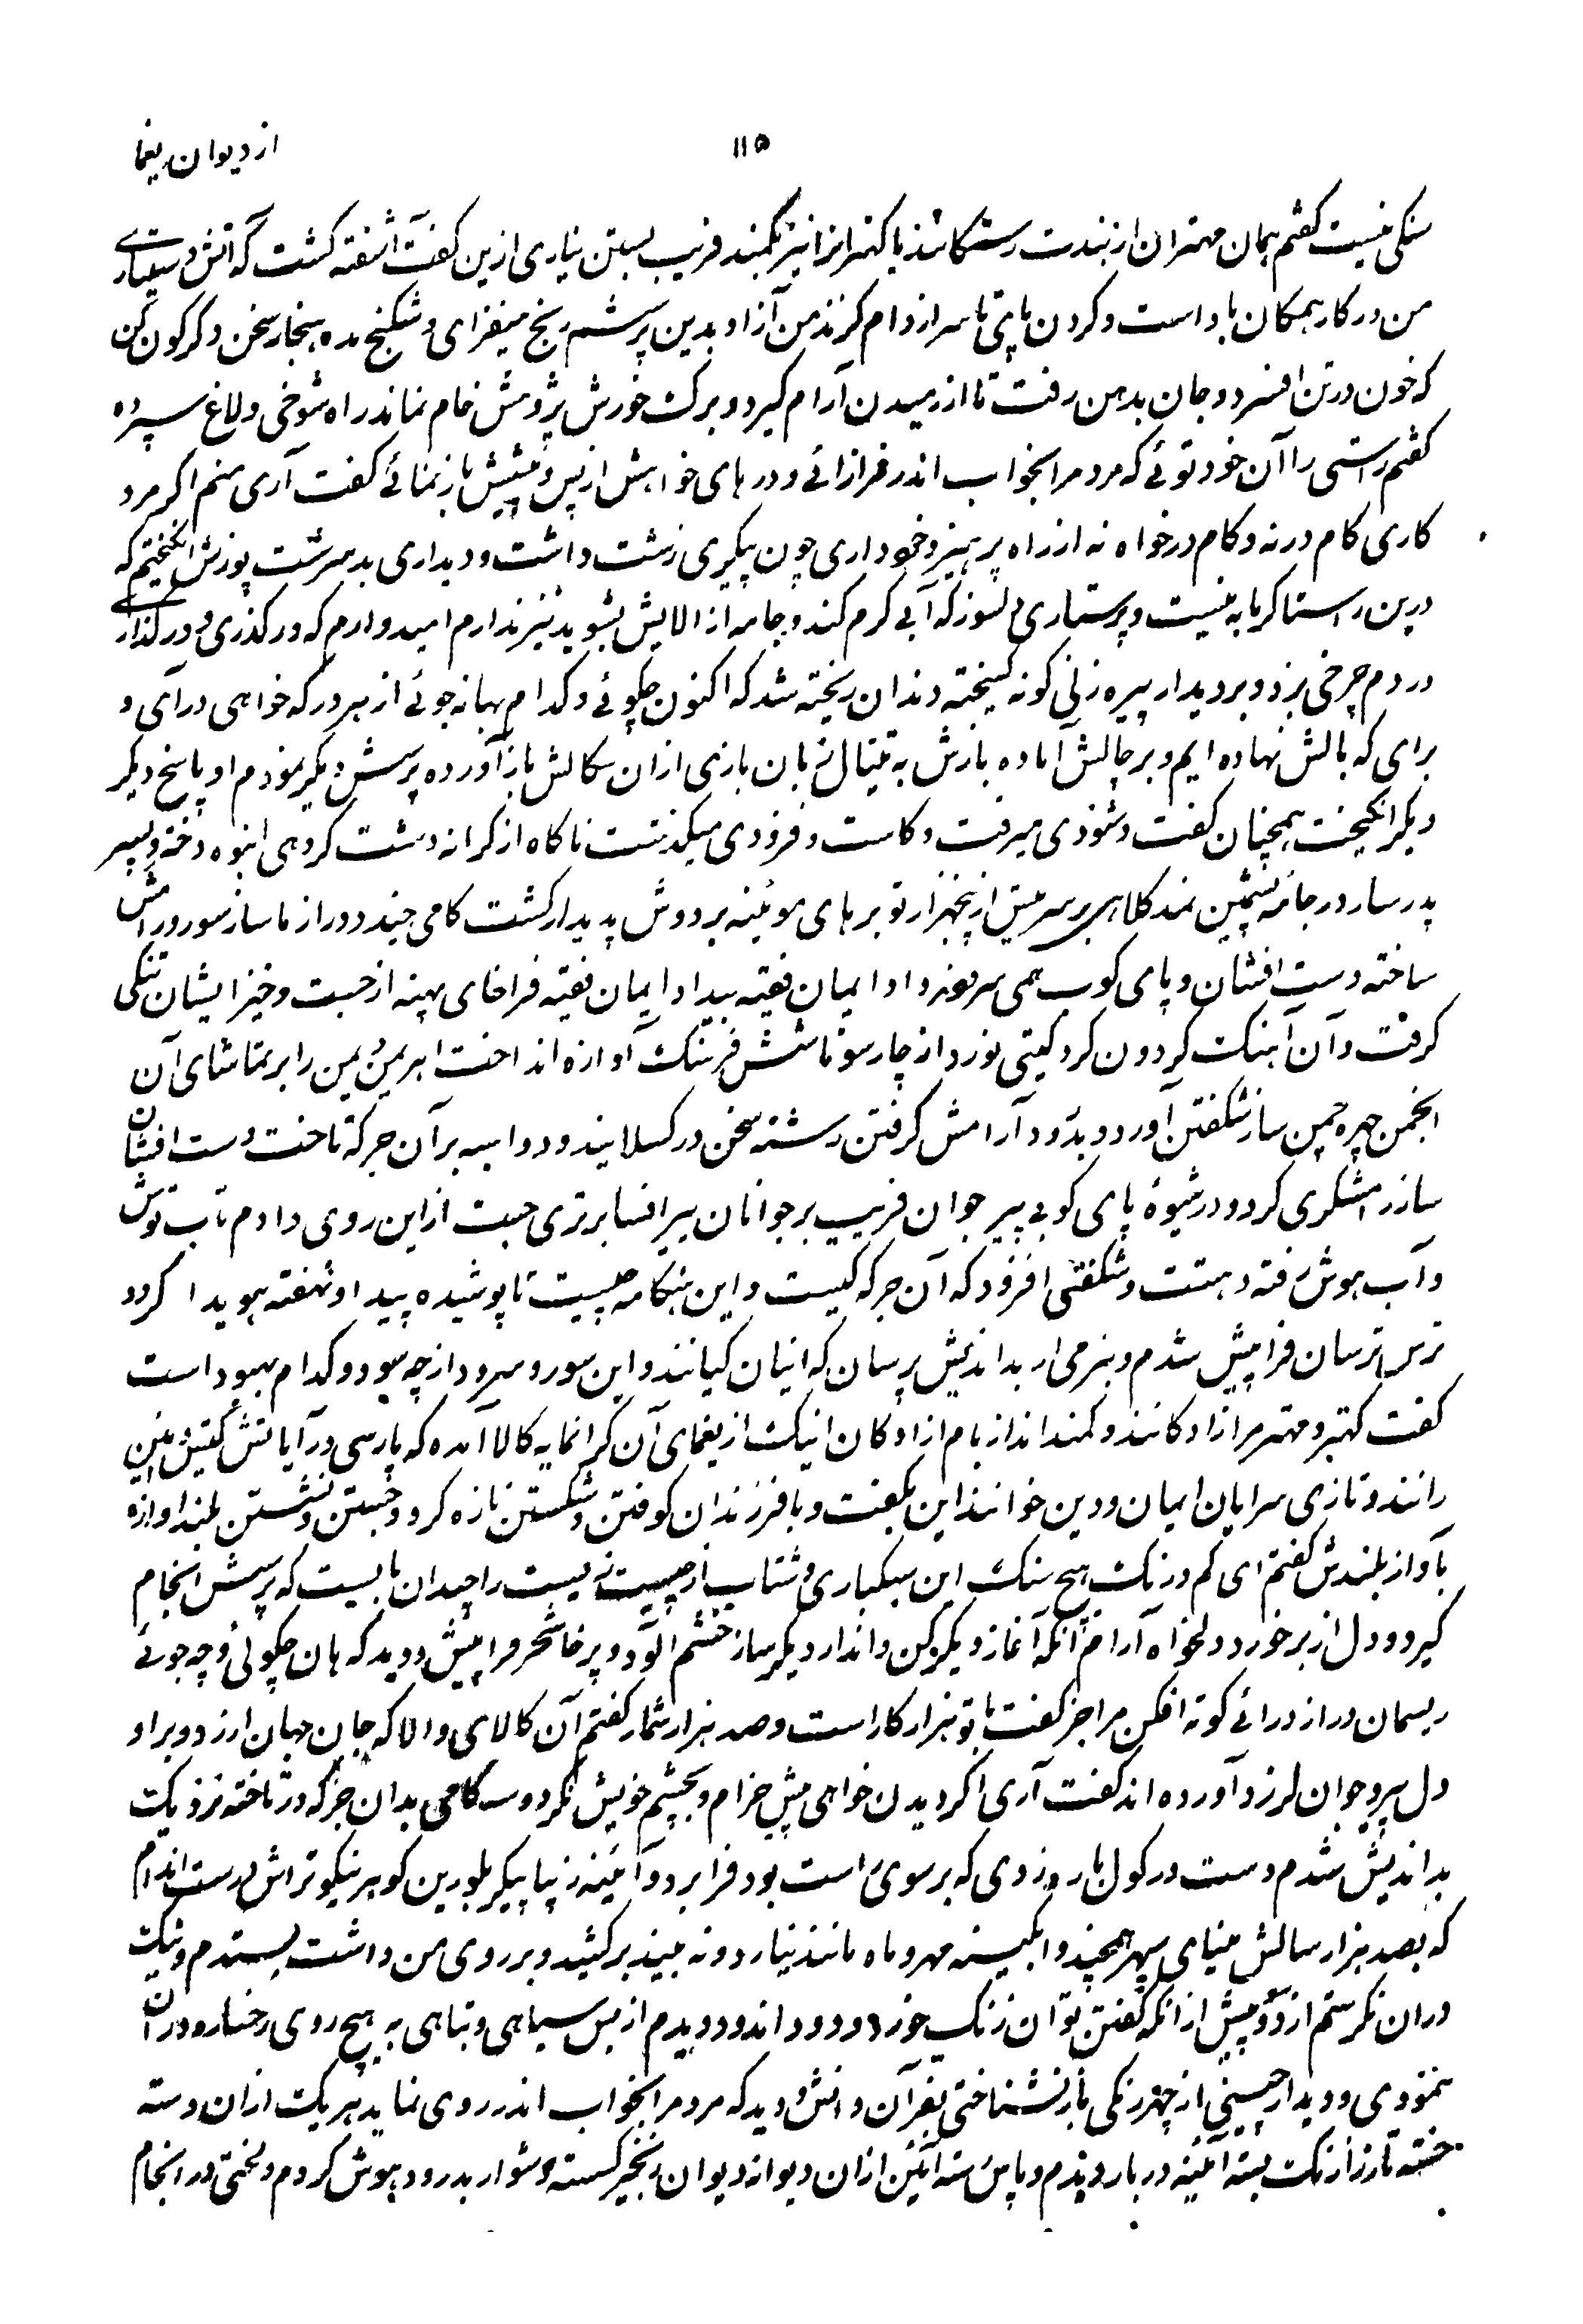 از دیوان یغما
۱۱۵
سنکی نیست کفتم همان مهتران از بندت رستکانند یا کهترانرا نیز بکمند فریب بستن نیاری ازین کفت آشفته کشت که آتش دستیاری
من در کار همکان باد است و کردن پای تا سر از دام کزند من آزاد بدین پرسشم رنج میفزای و شکنج مده هنجار سخن دکر کون کن
که خون در تن افسرد و جان بدهن رفت تا از رمیدن آرام کیرد و برک خورش پژوهش خام نماند راه شوخی و لاغ سپرده
کفتم راستی را آن خود توئی که مرد مرا بخواب اندر فراز آئی و درهای خواهش از پس و پیش باز نمائی کفت آری منم اکر مرد
کاری کام در نه و کام در خواه نه از راه پرهیز و خودداری چون پیکری زشت داشت و دیداری بد سرشت پوزش انکیختم که
درین راستا کرمابه نیست و پرستاری دلسوز که آبی کرم کند و جامه از الایش بشوید نیز ندارم امیدوارم که در کذری و در کذاری
در دم چرخی بزد و بر دیدار پیره زنی کونه کسیخته دندان ریخته شد که اکنون چکوئی و کدام بهانه جوئی از هر در که خواهی درآی و
برای که بالش نهاده ایم و بر چالش آماده بازش به تیتال زبان بازی ازان سکالش باز آورده پرسش دیکر نمودم او پاسخ دیکر
دیکر انکیخت همچنان کفت و شنودی میرفت و کاست و فزودی میکذشت ناکاه از کرانه دشت کروهی انبوه دخت و پسر
پدر سار در جامه پشمین نمد کلاهی بر سر بیش از پنجهزار توبرهای موئینه بر دوش پدیدار کشت کامی چند دور از ما ساز سور و رامش
ساخته دست افشان و پای کوب همی سرود داد ایمان فقیه بیداد ایمان فقیه فراخای پهنه از جست و خیز ایشان تنکی
کرفت و آن آهنک کردون کرد کیتی نورد از چار سو تا شش فرسنک آوازه انداخت اهریمن بهین را بر تماشای آن
انجمن چهره چمن ساز شکفتن آورد و بدرود آرامش کرفتن رشته سخن در کسلانید و دو اسبه بر آن جرکه تاخت دست افشان
ساز رامشکری کرد و در شیوۀ پای کوبی پیر جوان فریب بر جوانان پیر افسا برتری جست از این روی دادم تاب توش
و آب هوش رفته دهشت و شکفتی افزود که آن جرکه کیست و این هنکامه چیست تا پوشیده پیدا و نهفته هویدا کردد
ترس ترسان فرا پیش شدم و بنرمی از بد اندیش پرسان که اینان کیانند و این سور و سرود از چه سود و کدام بهبود است
کفت کهتر و مهتر مر ازادکانند و کمند انداز بام ازادکان اینک از یغمای آن کرانمایه کالا آمده که پارسی درآیانش کیش و آئین
رانند و تازی سرایان ایمان و دین خوانند این بکفت و با فرزندان کوفتن و شکستن تازه کرد و جستن و نشستن بلند اوازه
بآواز بلندش کفتم ای کم درنک هیچ سنک این سبکباری و شتاب از چیست نه بیست را چندان بایست که پرسش انجام
کیرد و دل از بر خورد دلخواه آرام آنکه آغاز دیکر کن و انداز دیکر ساز خشم آلود و پرخاشخر فرا پیش دوید که هان چکوئی و چه جوئی
ریسمان دراز درائی کوته افکن مرا جز کفت با تو هزار کار است و صد هزار شمار کفتم آن کالای والا که جان جهان ارزد و بر او
دل پیر و جوان لرزد آورده اند کفت آری اکر دیدن خواهی پیش خرام و بچشم خویش نکر دو سه کامی بدان جرکه در تاخته نزدیک
بد اندیش شدم دست در کول بار روزدی که بر سوی راست بود فرا برد و آئینه زیبا پیکر بلورین کوهر نیکو تراش درست اندام
که بصد هزار سالش مینای سپهر همچند و ابکینه مهر و ماه مانند نیارد و نه بیند برکشید و بر روی من داشت بستدم و نیک
دران نکرستم از دو پیش از انکه کفتن توان زنک خورد و دود اندود دیدم از بس سیاهی و تباهی به هیچ روی رخساره دران
ننمودی و دیدار چینی از چهر زنکی باز نشناختی بفر آن دانش و دید که مردم را بخواب اندر روی نماید هر یک ازان دسته
خسته تا رزا زنک بسته آئینه در بار دیدم و پاس سه آئین ازان دیوانه دیوان زنجیر کسسته دشوار بدرود هوش کردم و لختی در انجام